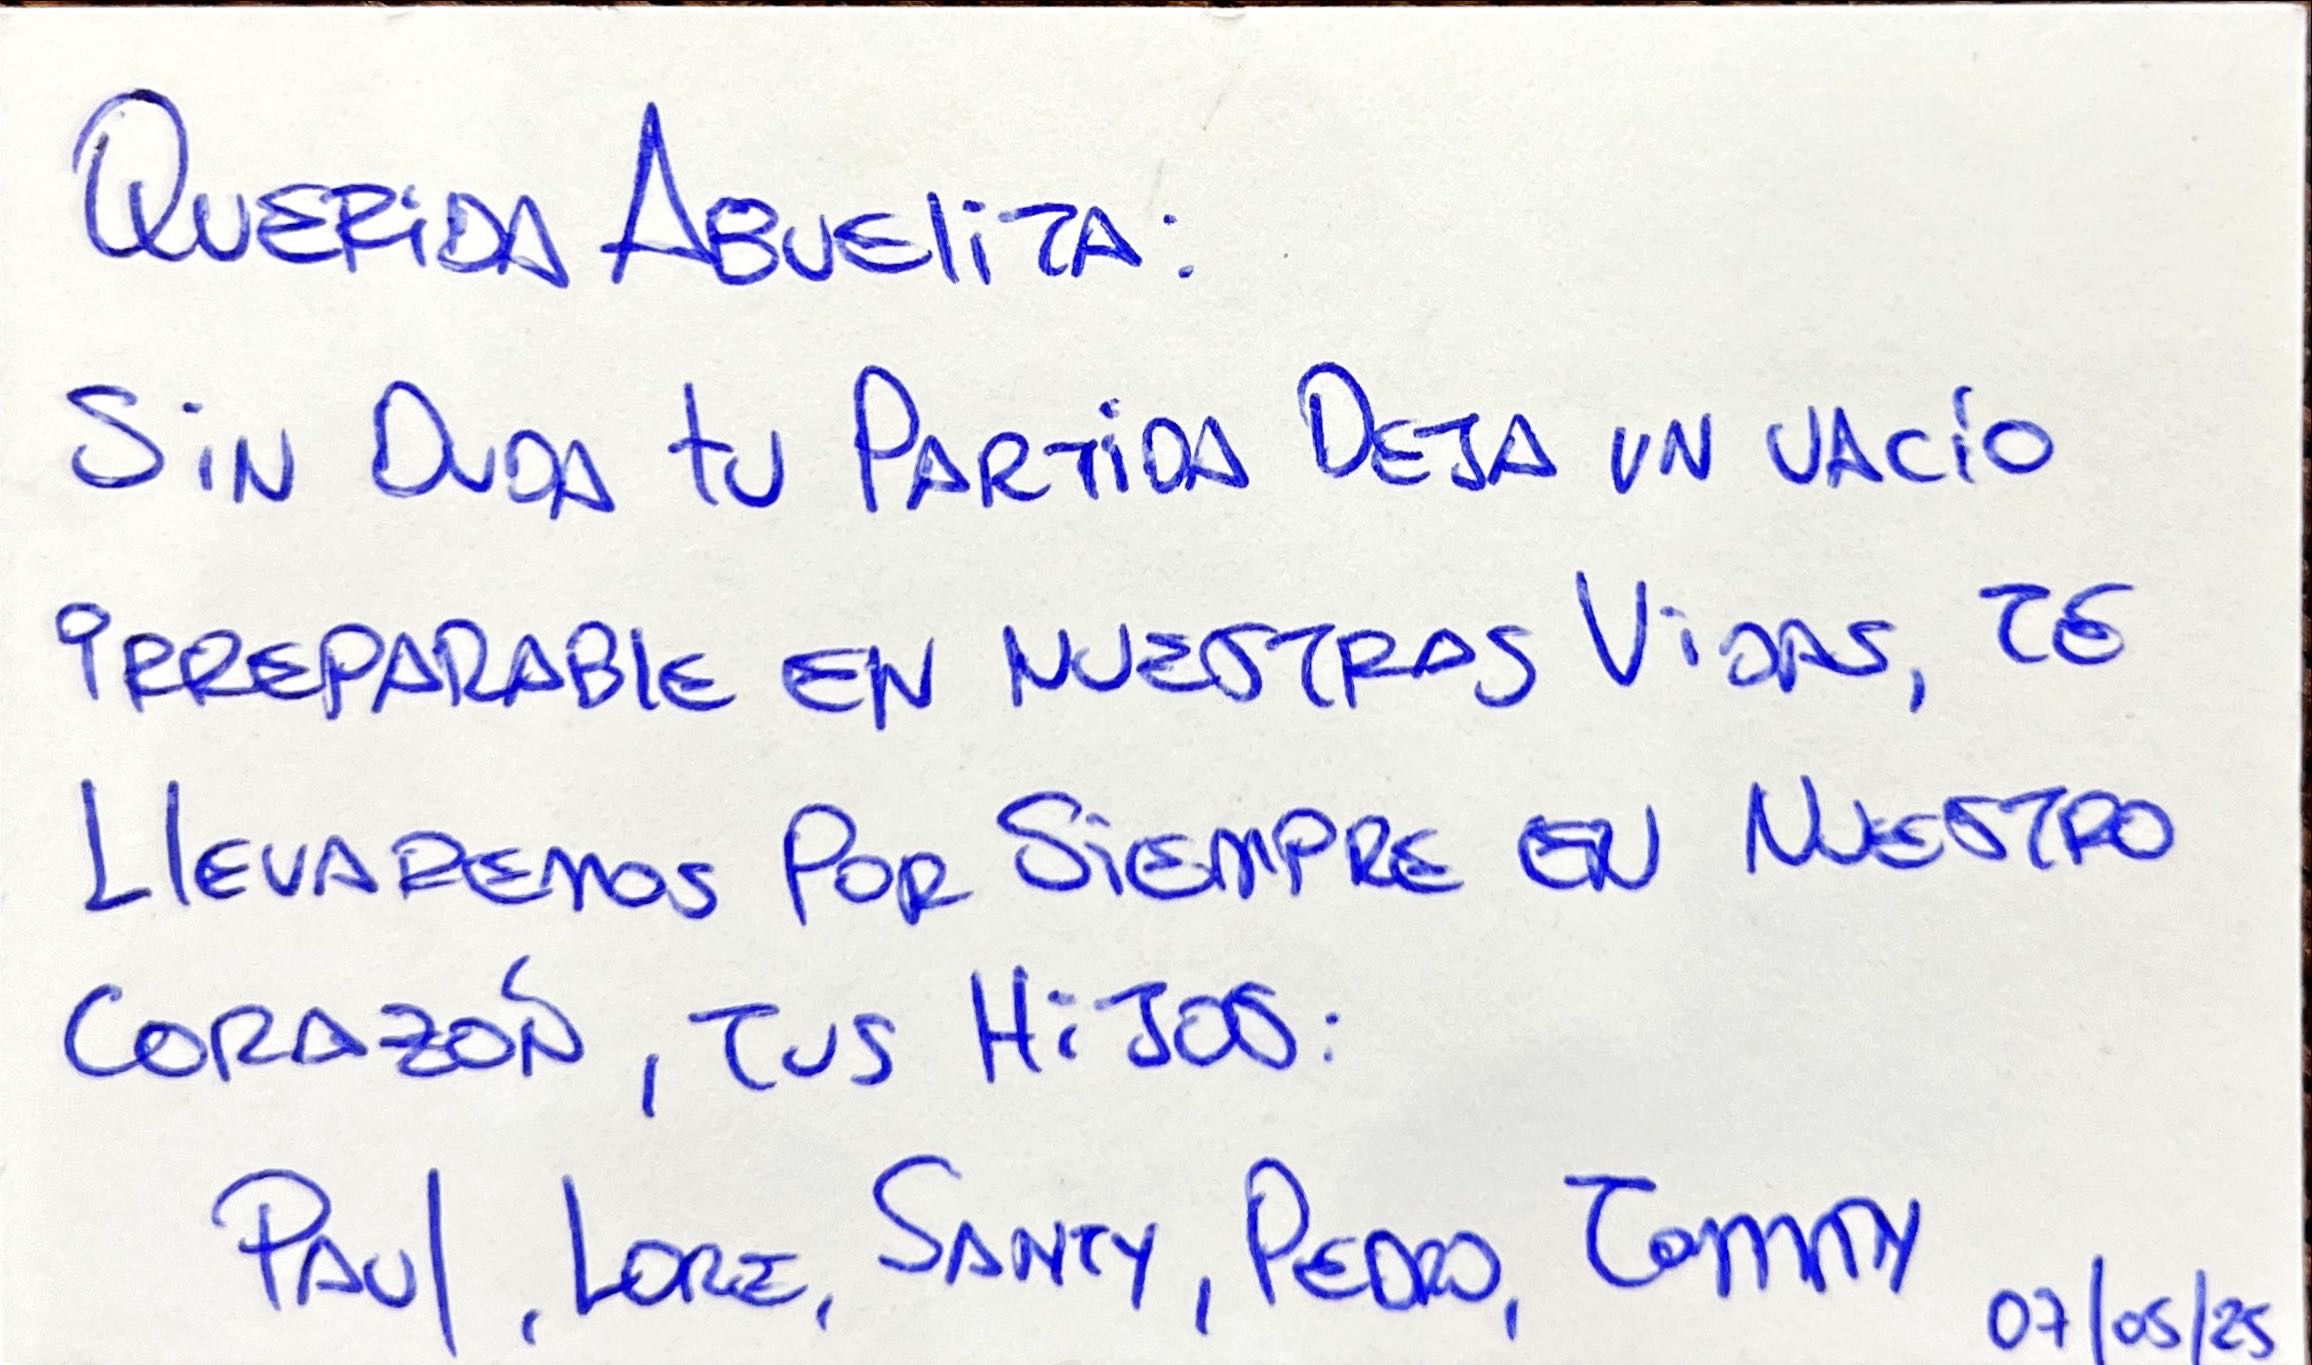 Querida Abuelita:
Sin Duda tu Partida Deja un vacío
irreparable en nuestras Vidas, te
Llevaremos Por Siempre en Nuestro
Corazón, tus Hijos:
Paul, Lore, Santy, Pedro, Tommy
07/05/25